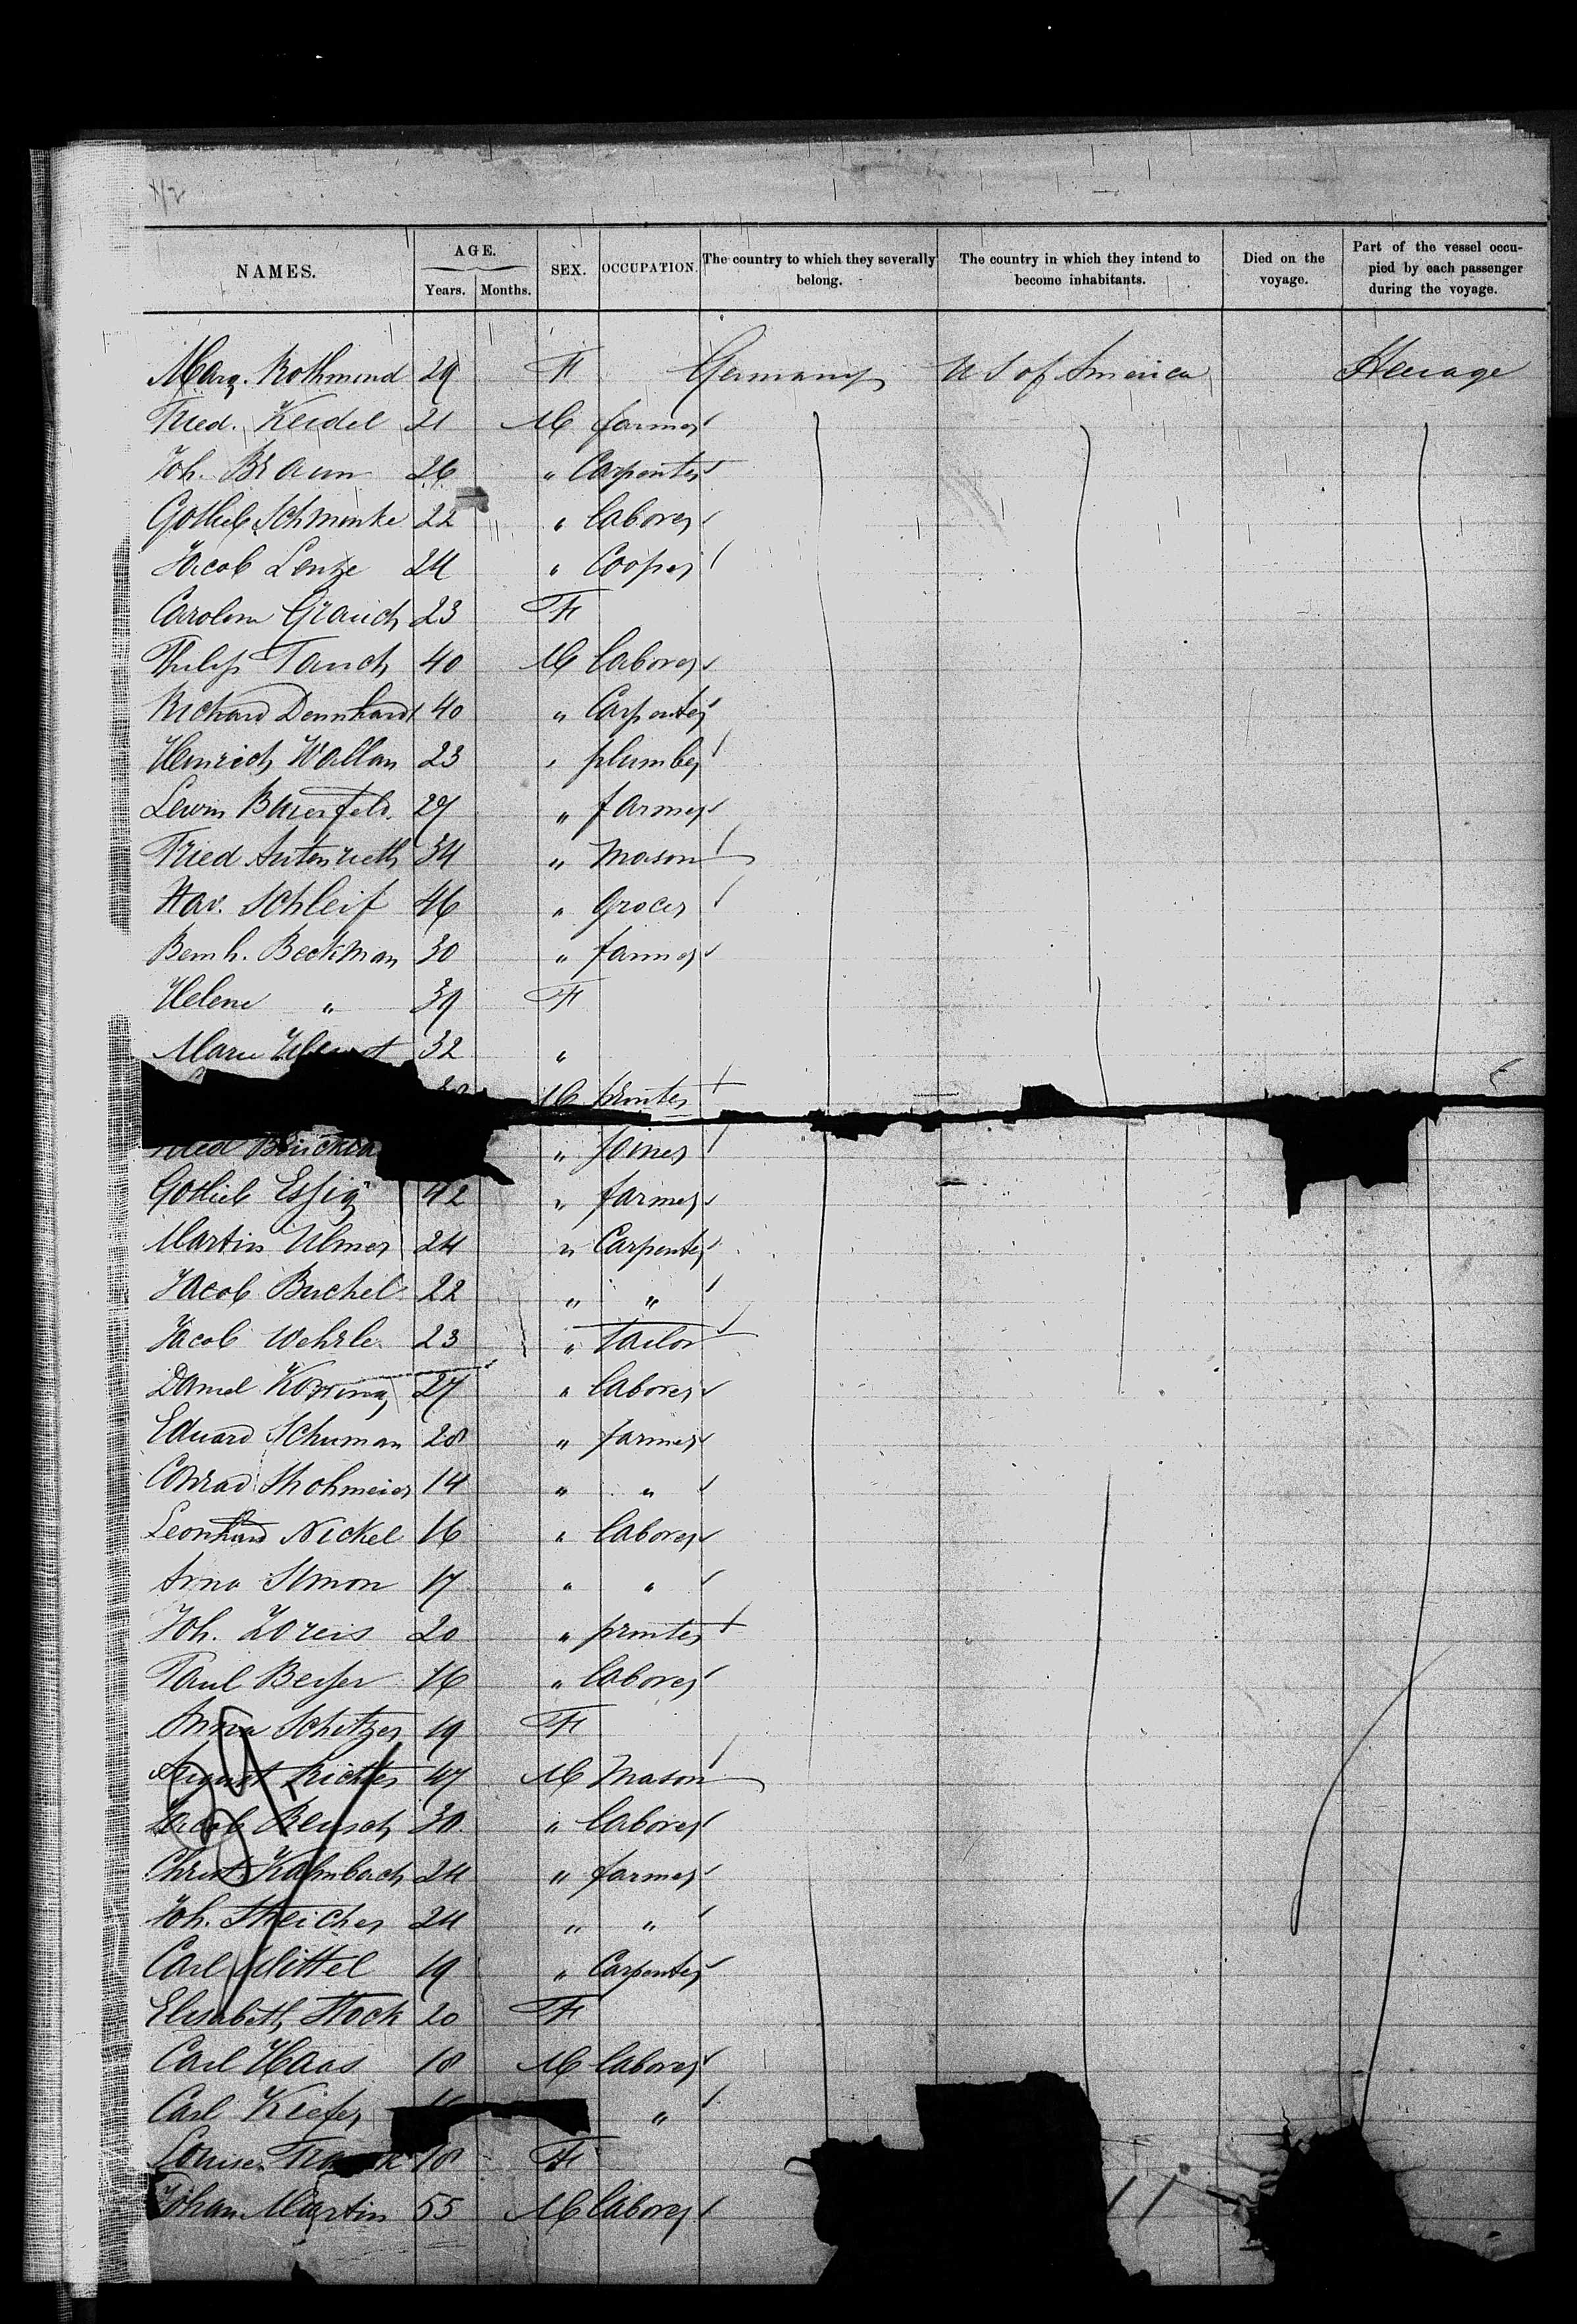 NAMES. AGE. Years. Months. SEX. OCCUPATION. The country to which they severally belong. The country in which they intend to become inhabitants. Died on the voyage. Part of the vessel occupied by each passenger during the voyage.
Marg. Rothmund 29 F Germany U S of America Steerage
Fried. Keidel 21 M farmer
Joh. Braun 26 " Carpenter
Gotlieb Schminke 22 " laborer
Jacob Lenze 24 " Cooper
Carolem 23 F
Philip Tauch 40 M laborer
Richard Dennhardt 40 " Carpenter
Heinrich Wallan 23 " plumber
Lewin 27 " farmer
Fried Autenrieth 34 " mason
Xav. Schleif 46 " grocer
Bernh. Beckman 30 " farmer
Helene " 39 F
Marie 32 "
M printer
Fried " Joiner
Gotlieb Essig 42 " farmer
Martin Ulmer 24 " Carpenter
Jacob Buchel 22 " "
Jacob Wehrle 23 " tailor
Daniel 27 " laborer
Eduard Schuman 28 " farmer
Conrad Strohmeier 14 " "
Leonhard Nickel 16 " laborer
Arno Simon 17 " "
Joh. Zoreis 20 " printer
Paul Beyer 16 " laborer
Anna Schitzer 19 F
August Richter 47 M mason
Jacob Reusch 30 " laborer
Christ. Kahnbach 24 " farmer
Joh. Streicher 24 " "
Carl Mittel 19 " Carpenter
Elisabeth Stock 20 F
Carl Haas 18 M laborer
Carl Kiefer "
Louise 18 F
Johan Martin 55 M laborer